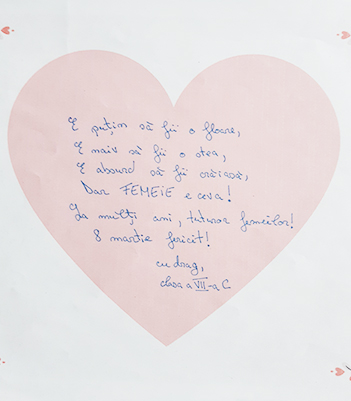 E puțin să fii o floare,
E naiv să fii o stea,
E absurd să fii crăiasă,
Dar FEMEIE e ceva!
La mulți ani, tuturor femeilor!
8 martie fericit!
cu drag,
clasa a VII-a C